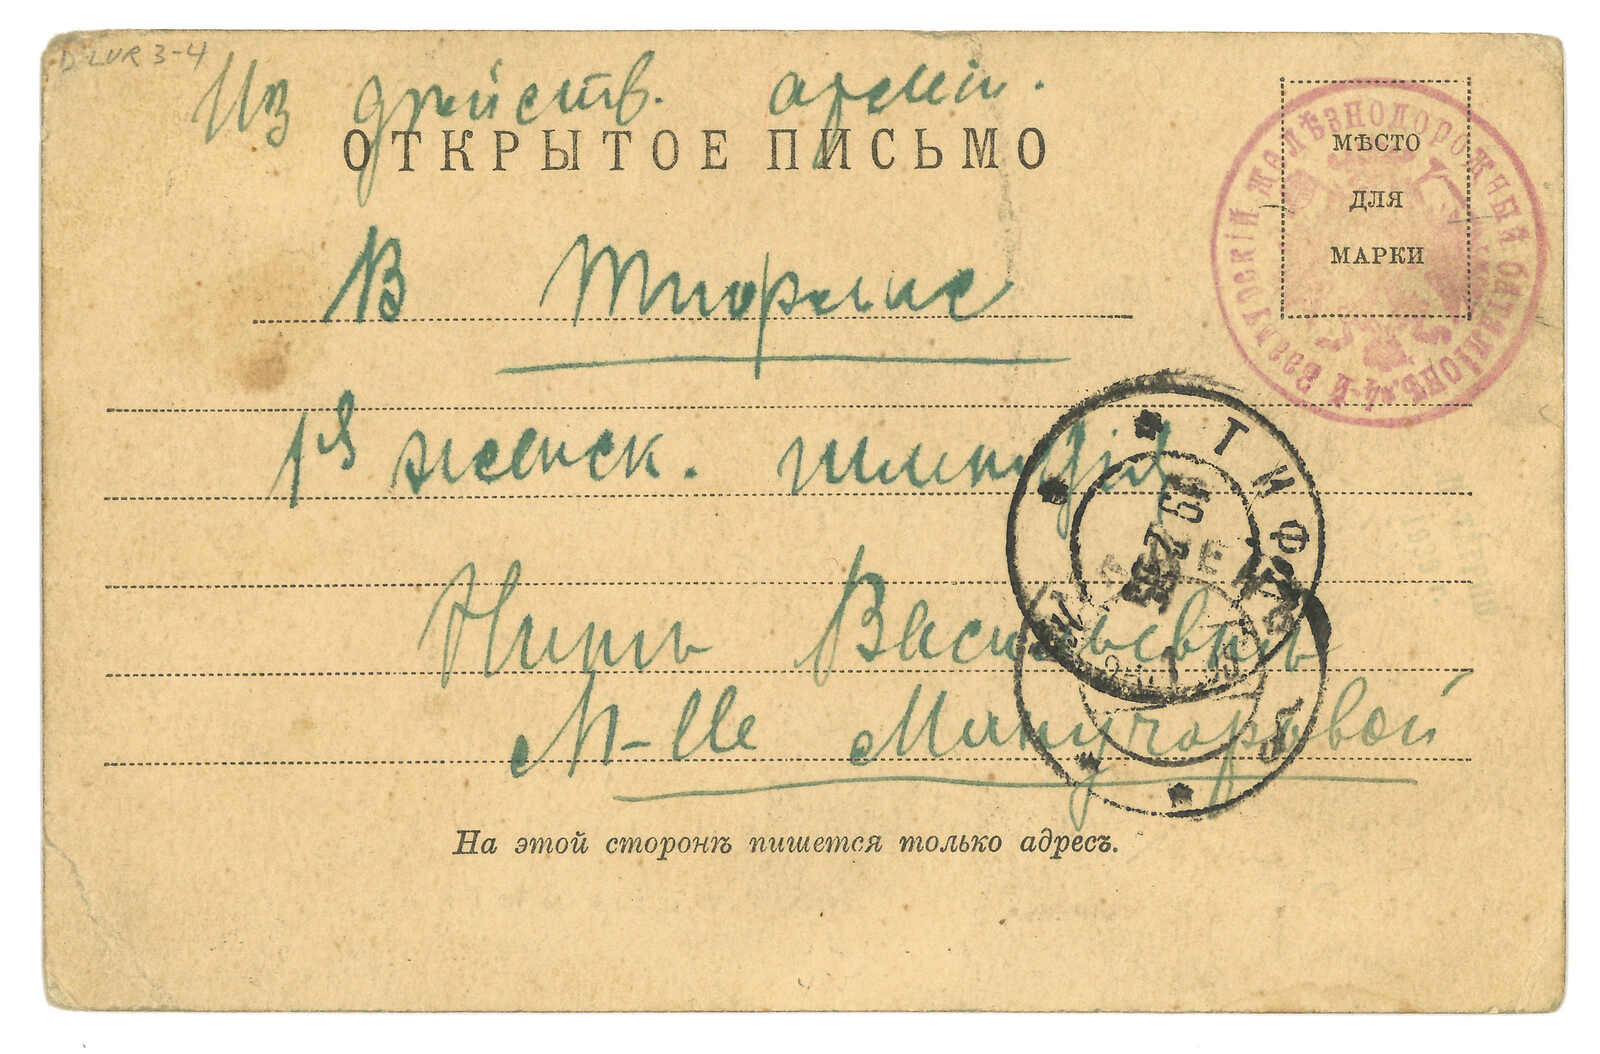 D-LUR 3-4
Из действ. армiи.
ОТКРЫТОЕ ПИСЬМО
МѢСТО
ДЛЯ
МАРКИ
4-й Заамурскiй желѣзнодорожный баталiонъ
В Тифлис
1ая женск. гимназiя
ТИФ
Нинѣ Васильевнѣ
M-lle Манучаровой
На этой сторонѣ пишется только адресъ.